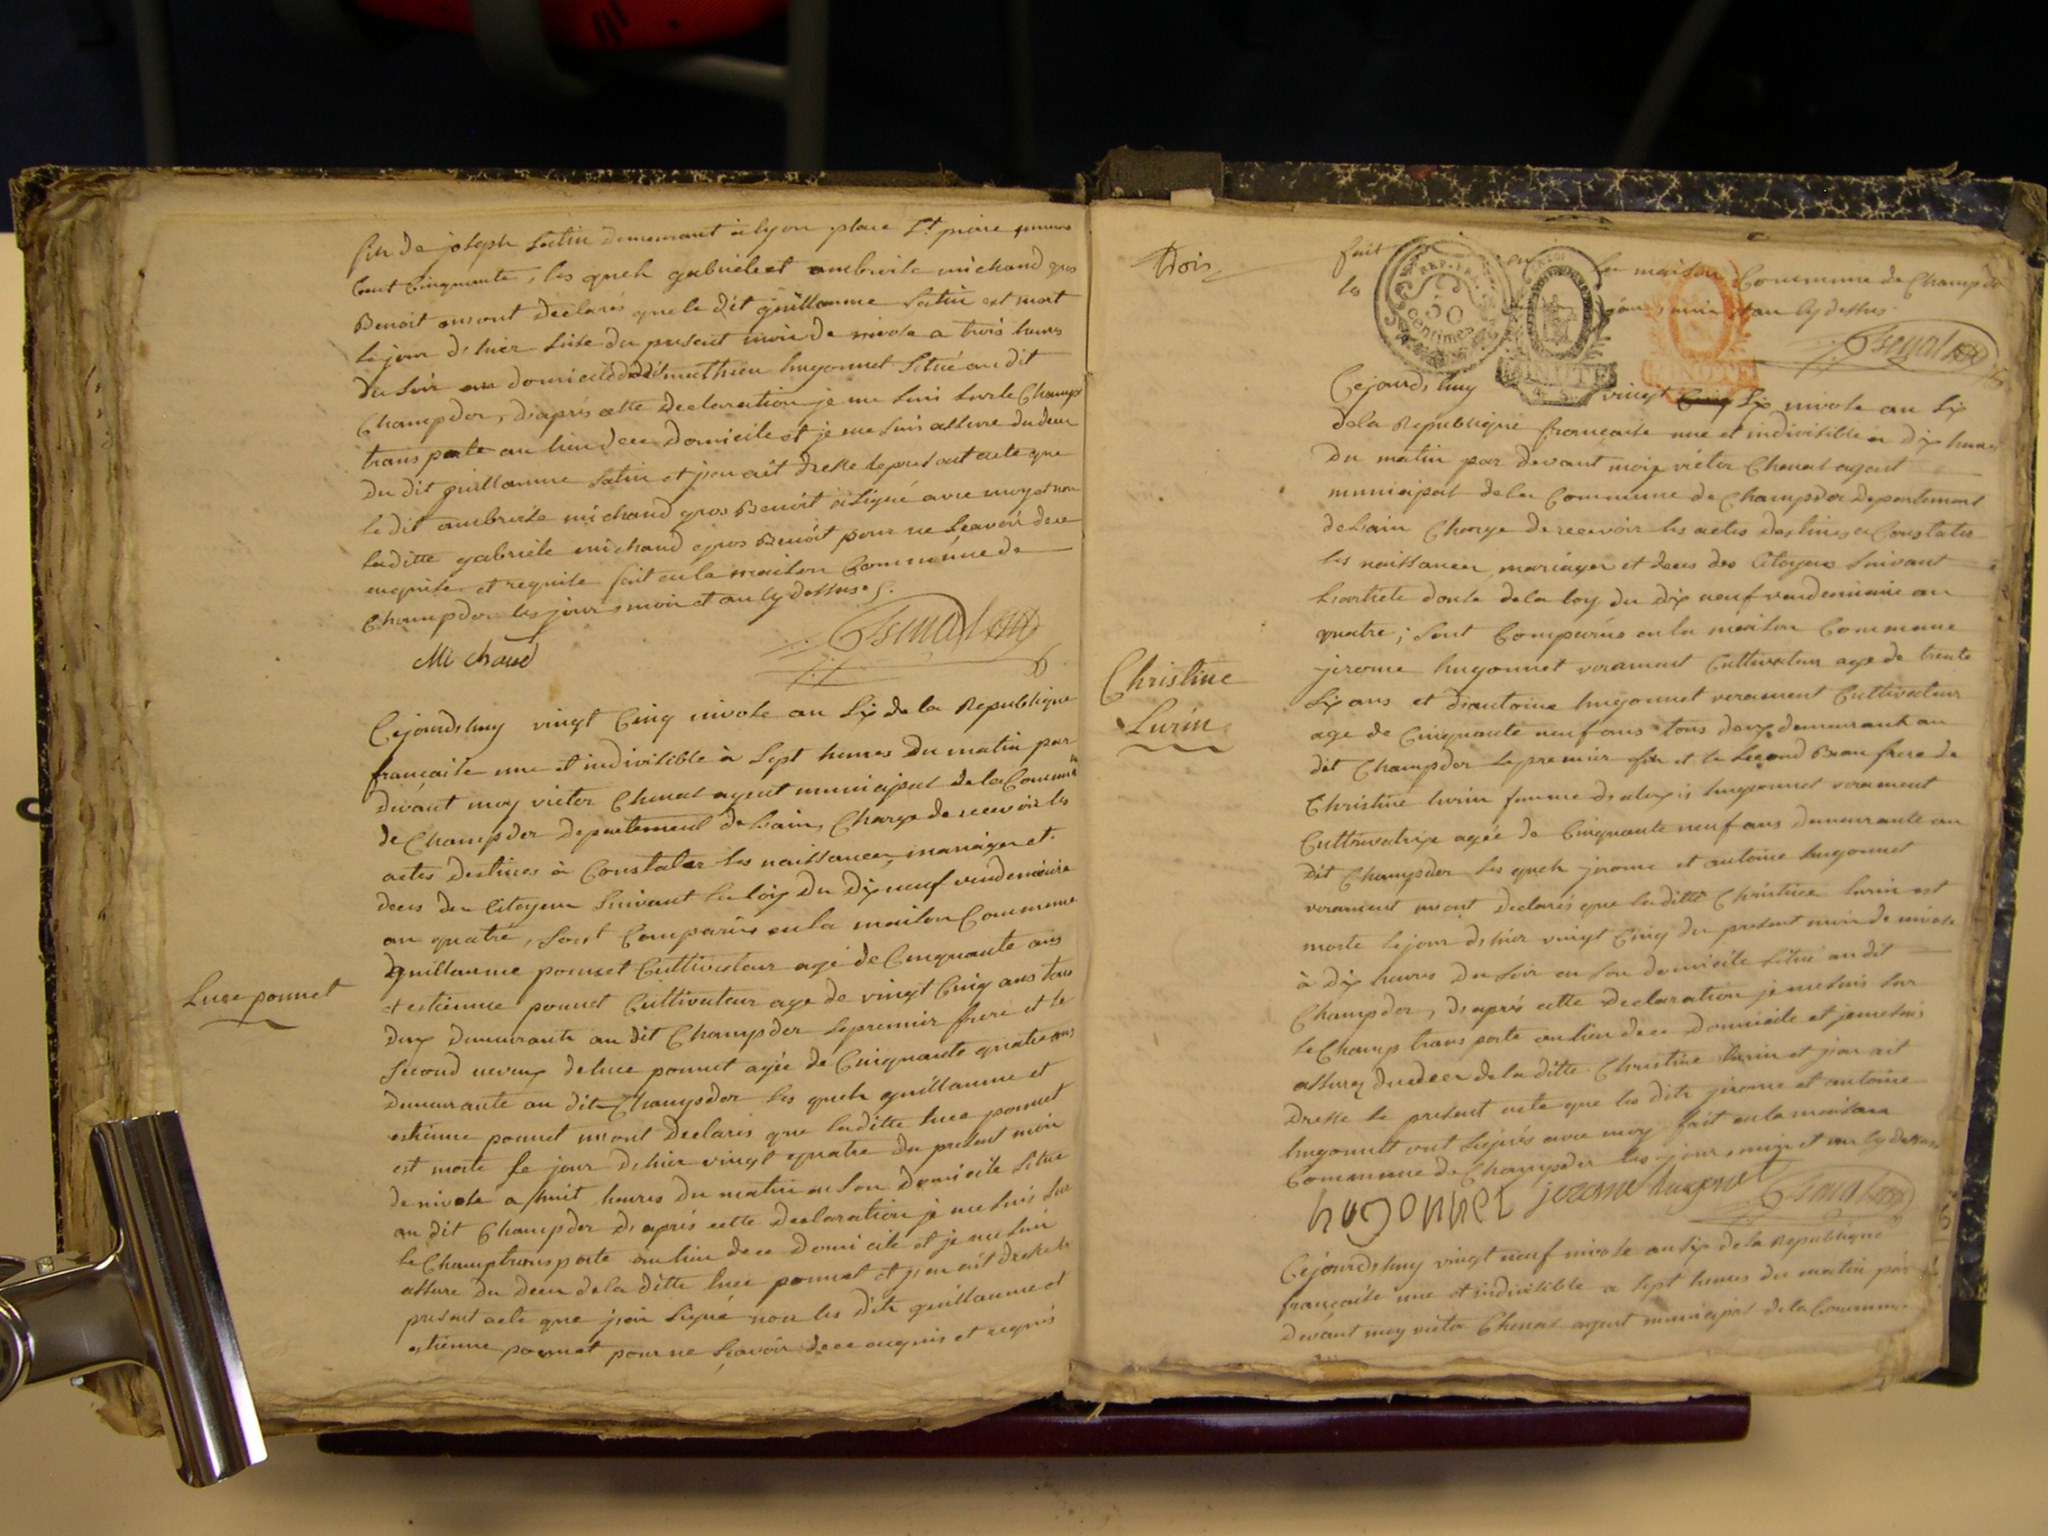 fils de joseph Satin demeurant à lyon place St pierre numero
Cent Cinquante, les quels gabriele et ambroise michaud gros
Benoit m'ont declarés que le dit guillaume Satin est mort
le jour d'hier Seise du present mois de nivose a trois heures
du Soir au domicile dudit mathieu hugonnet Situé au dit
Champdor, d'après cette declaration je me suis sur le Champs
transporté au lieu de ce domicile et je me suis assure du deces
du dit guillaume Satin et j'en ait dressé le present acte que
le dit ambroise michaud gros Benoit a Signé avec moy et non
laditte gabriele michaud gros Benoit pour ne Scavoir de ce
enquise et requise fait en la maison Commune de
Champdor les jours mois et an cy dessus.
Michaud
Luce ponnet
Cejourdhuy vingt Cinq nivose an Six de la Republique
francaise une et indivisible à Sept heures Du matin par
devant moy victor Chenal agent municipal de la Commune
de Champdor departement de Lain, Charge de recevoir les
actes destines à Constater les naissances, mariages et
deces des Citoyens Suivant la loy Du Dix neuf vendemiaire
an quatre, Sont Comparus en la maison Commune
guillaume ponnet Cultivateur agé de Cinquante ans
et estienne ponnet Cultivateur age de vingt Cinq ans tous
deux demeurants au dit Champdor le premier frere et le
Second neveux de luce ponnet agée de Cinquante quatre ans
demeurante au dit Champdor les quels guillaume et
estienne ponnet m'ont Declarés que laditte luce ponnet
est morte le jour D'hier vingt quatre du present mois
de nivose a huit heures Du matin en Son Domicile Situé
au dit Champdor D'après cette declaration je me suis Sur
le Champ transporte au lieu de ce Domicile et je me suis
assure du deces de la ditte luce ponnet et j'en ait dressé le
present acte que j'ai Signé non les dits guillaume et
estienne ponnet pour ne Sçavoir de ce enquis et requis
trois
fait en la maison Commune de Champdor
les jours mois et an cy dessus
REP. FRA.
50
Centimes
MINUTE
MINUTE
Christine
Lurin
Cejourdhuy vingt Cinq Six nivose an Six
de la Republique francaise une et indivisible a Dix heures
Du matin par devant moy victor Chenal agent
municipal de la Commune de Champdor departement
de Lain Charge de recevoir les actes destines a Constater
les naissances, mariages et deces des Citoyens Suivant
la loy du Dix neuf vendemiaire an
quatre; Sont Comparus en la maison Commune
jerome hugonnet verament Cultivateur age de trente
Six ans et d'antoine hugonnet verament Cultivateur
age de Cinquante neuf ans tous deux demeurant au
dit Champdor le premier fils et le Second Beau frere de
Christine lurin femme d'alexis hugonnet verament
Cultivatrix agée de Cinquante neuf ans demeurante au
Dit Champdor les quels jerome et antoine hugonnet
verament m'ont Declarés que laditte Christine lurin est
morte le jour d'hier vingt Cinq du present mois de nivose
à Dix heures Du Soir en Son domicile Situé au dit
Champdor, d'après cette Declaration je me suis Sur
le Champ transporte au lieu de ce Domicile et je me suis
assurez du deces de la ditte Christine lurin et j'en ait
Dressé le present acte que les dits jerome et antoine
hugonnet ont Signés avec moy fait en la maison
Commune de Champdor les jours mois et an cy dessus
hugonnet jerome hugonet
Cejourdhuy vingt neuf nivose an Six de la Republique
francaise une et indivisible a Sept heures du matin par
Devant moy victor Chenal agent municipal de la Commune